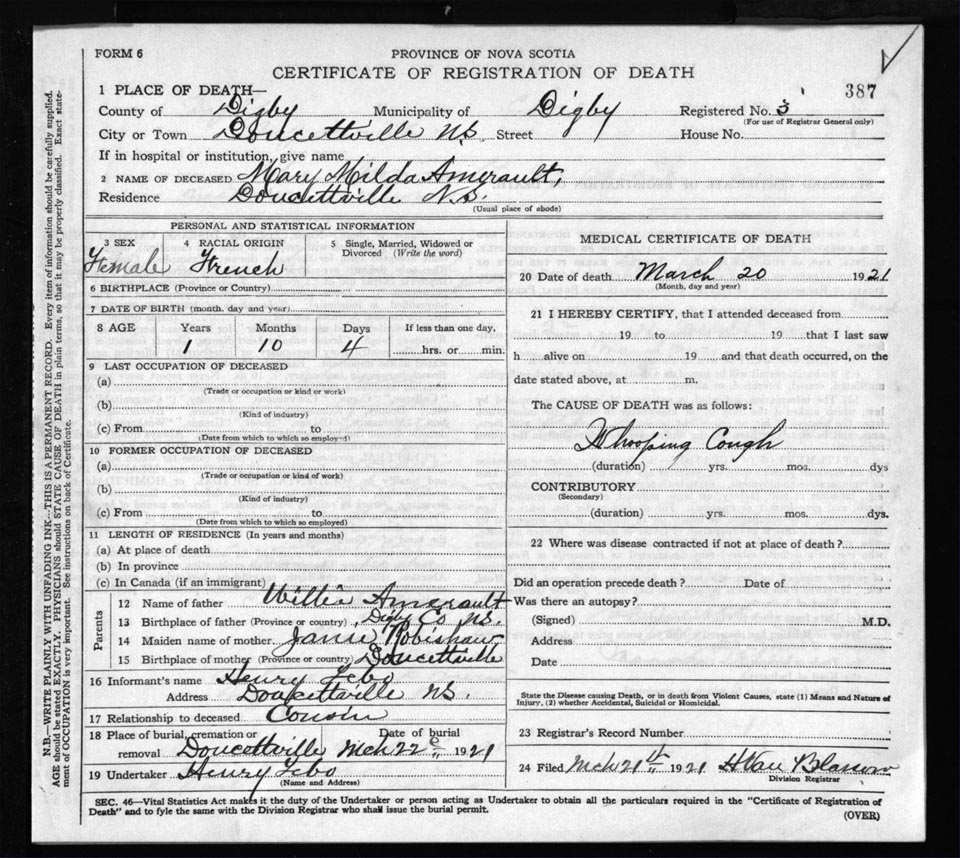 FORM 6
PROVINCE OF NOVA SCOTIA
CERTIFICATE OF REGISTRATION OF DEATH
387
1 PLACE OF DEATH—
County of Digby Municipality of Digby Registered No. 3
(For use of Registrar General only)
City or Town Doucettville N.S. Street House No.
If in hospital or institution, give name
2 NAME OF DECEASED Mary Milda Amerault,
Residence Doucettville N.S.
(Usual place of abode)
PERSONAL AND STATISTICAL INFORMATION
3 SEX 4 RACIAL ORIGIN 5 Single, Married, Widowed or Divorced (Write the word)
Female French
6 BIRTHPLACE (Province or Country)
7 DATE OF BIRTH (month, day and year)
8 AGE Years Months Days If less than one day,
1 10 4 hrs. or min.
9 LAST OCCUPATION OF DECEASED
(a)
(Trade or occupation or kind of work)
(b)
(Kind of industry)
(c) From to
(Date from which to which so employed)
10 FORMER OCCUPATION OF DECEASED
(a)
(Trade or occupation or kind of work)
(b)
(Kind of industry)
(c) From to
(Date from which to which so employed)
11 LENGTH OF RESIDENCE (In years and months)
(a) At place of death
(b) In province
(c) In Canada (if an immigrant)
Parents
12 Name of father Willie Amerault
13 Birthplace of father (Province or country) Digby Co N.S.
14 Maiden name of mother Janie Robishaw
15 Birthplace of mother (Province or country) Doucettville
16 Informant's name Henry Lebo
Address Doucettville N.S.
17 Relationship to deceased Cousin
18 Place of burial, cremation or removal Doucettville Date of burial Mch 22 1921
19 Undertaker Henry Lebo
(Name and Address)
MEDICAL CERTIFICATE OF DEATH
20 Date of death March 20 1921
(Month, day and year)
21 I HEREBY CERTIFY, that I attended deceased from
19 to 19 that I last saw
h alive on 19 and that death occurred, on the
date stated above, at m.
The CAUSE OF DEATH was as follows:
Whooping Cough
(duration) yrs. mos. dys
CONTRIBUTORY
(Secondary)
(duration) yrs. mos. dys.
22 Where was disease contracted if not at place of death?
Did an operation precede death? Date of
Was there an autopsy?
(Signed) M.D.
Address
Date
State the Disease causing Death, or in death from Violent Causes, state (1) Means and Nature of
Injury, (2) whether Accidental, Suicidal or Homicidal.
23 Registrar's Record Number
24 Filed Mch 21 1921
Division Registrar
SEC. 46—Vital Statistics Act makes it the duty of the Undertaker or person acting as Undertaker to obtain all the particulars required in the "Certificate of Registration of
Death" and to fyle the same with the Division Registrar who shall issue the burial permit.
(OVER)
N.B.—WRITE PLAINLY WITH UNFADING INK—THIS IS A PERMANENT RECORD. Every item of information should be carefully supplied.
AGE should be stated EXACTLY. PHYSICIANS should STATE CAUSE OF DEATH in plain terms, so that it may be properly classified. Exact state-
ment of OCCUPATION is very important. See instructions on back of Certificate.